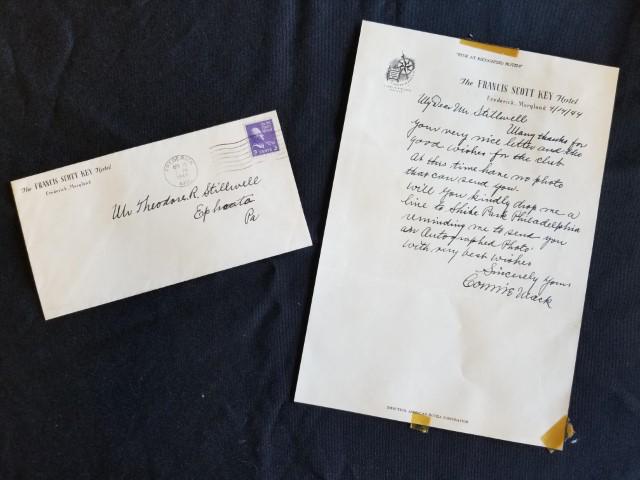 The FRANCIS SCOTT KEY Hotel
Frederick, Maryland
FREDERICK
3 CENTS 3
Mr Theodore R. Stillwell
Ephrata
Pa
"STOP AT RECOGNIZED HOTELS"
The FRANCIS SCOTT KEY Hotel
Frederick, Maryland 4/14/44
My Dear Mr. Stillwell
Many thanks for
your very nice letter and the
good wishes for the club
At this time have no photo
that can send you
will you kindly drop me a
line to Shibe Park Philadelphia
reminding me to send you
an Autographed Photo
with very best wishes
Sincerely yours
Connie Mack
DIRECTION AMERICAN HOTELS CORPORATION